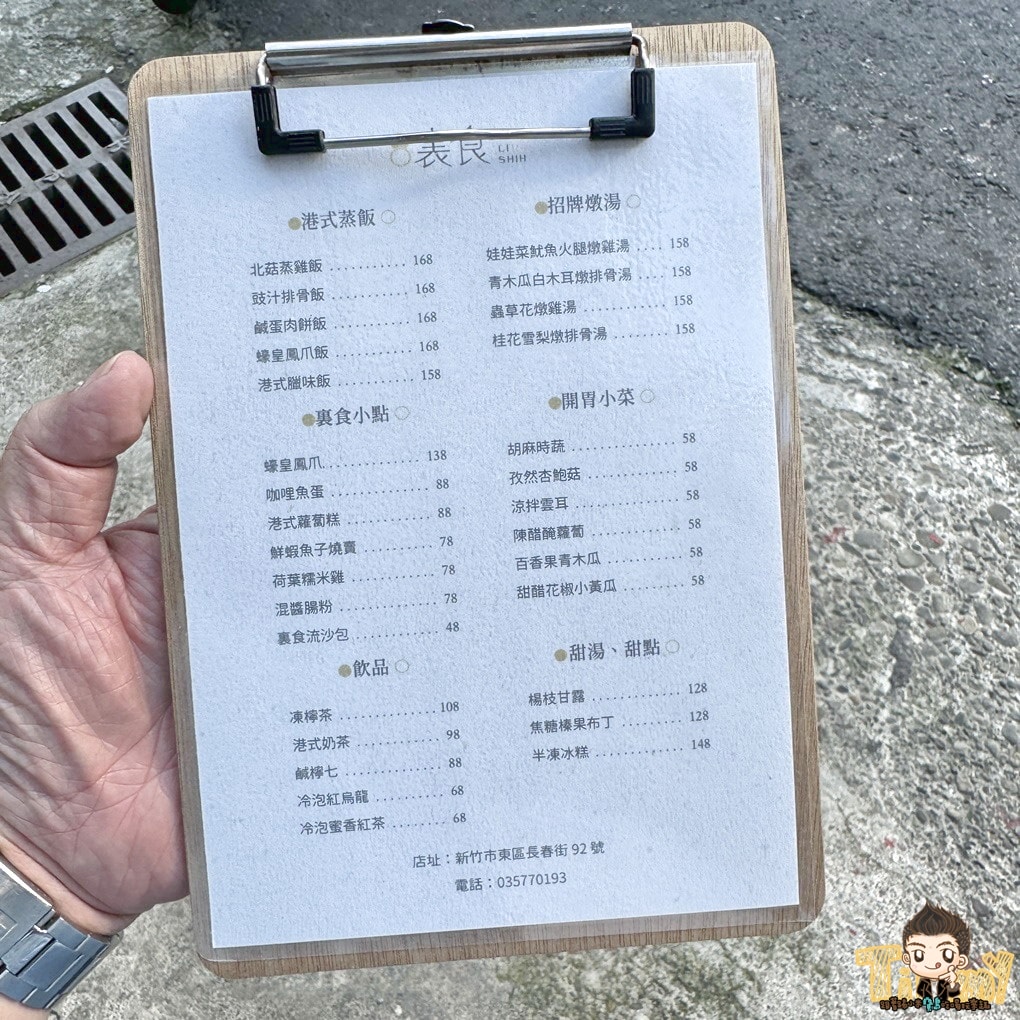 裏食 LI SHIH
港式蒸飯
北菇蒸雞飯 ........... 168
豉汁排骨飯 ........... 168
鹹蛋肉餅飯 ........... 168
蠔皇鳳爪飯 ........... 168
港式臘味飯 ........... 158
裏食小點
蠔皇鳳爪 ............. 138
咖哩魚蛋 ............. 88
港式蘿蔔糕 ........... 88
鮮蝦魚子燒賣 ......... 78
荷葉糯米雞 ........... 78
混醬腸粉 ............. 78
裏食流沙包 ........... 48
飲品
凍檸茶 ............. 108
港式奶茶 ........... 98
鹹檸七 ............. 88
冷泡紅烏龍 .......... 68
冷泡蜜香紅茶 ........ 68
招牌燉湯
娃娃菜魷魚火腿燉雞湯 .... 158
青木瓜白木耳燉排骨湯 .... 158
蟲草花燉雞湯 ........... 158
桂花雪梨燉排骨湯 ........ 158
開胃小菜
胡麻時蔬 .............. 58
孜然杏鮑菇 ............ 58
涼拌雲耳 .............. 58
陳醋醃蘿蔔 ............ 58
百香果青木瓜 .......... 58
甜醋花椒小黃瓜 ........ 58
甜湯、甜點
楊枝甘露 ............ 128
焦糖榛果布丁 ......... 128
半凍冰糕 ............ 148
店址：新竹市東區長春街 92 號
電話：035770193